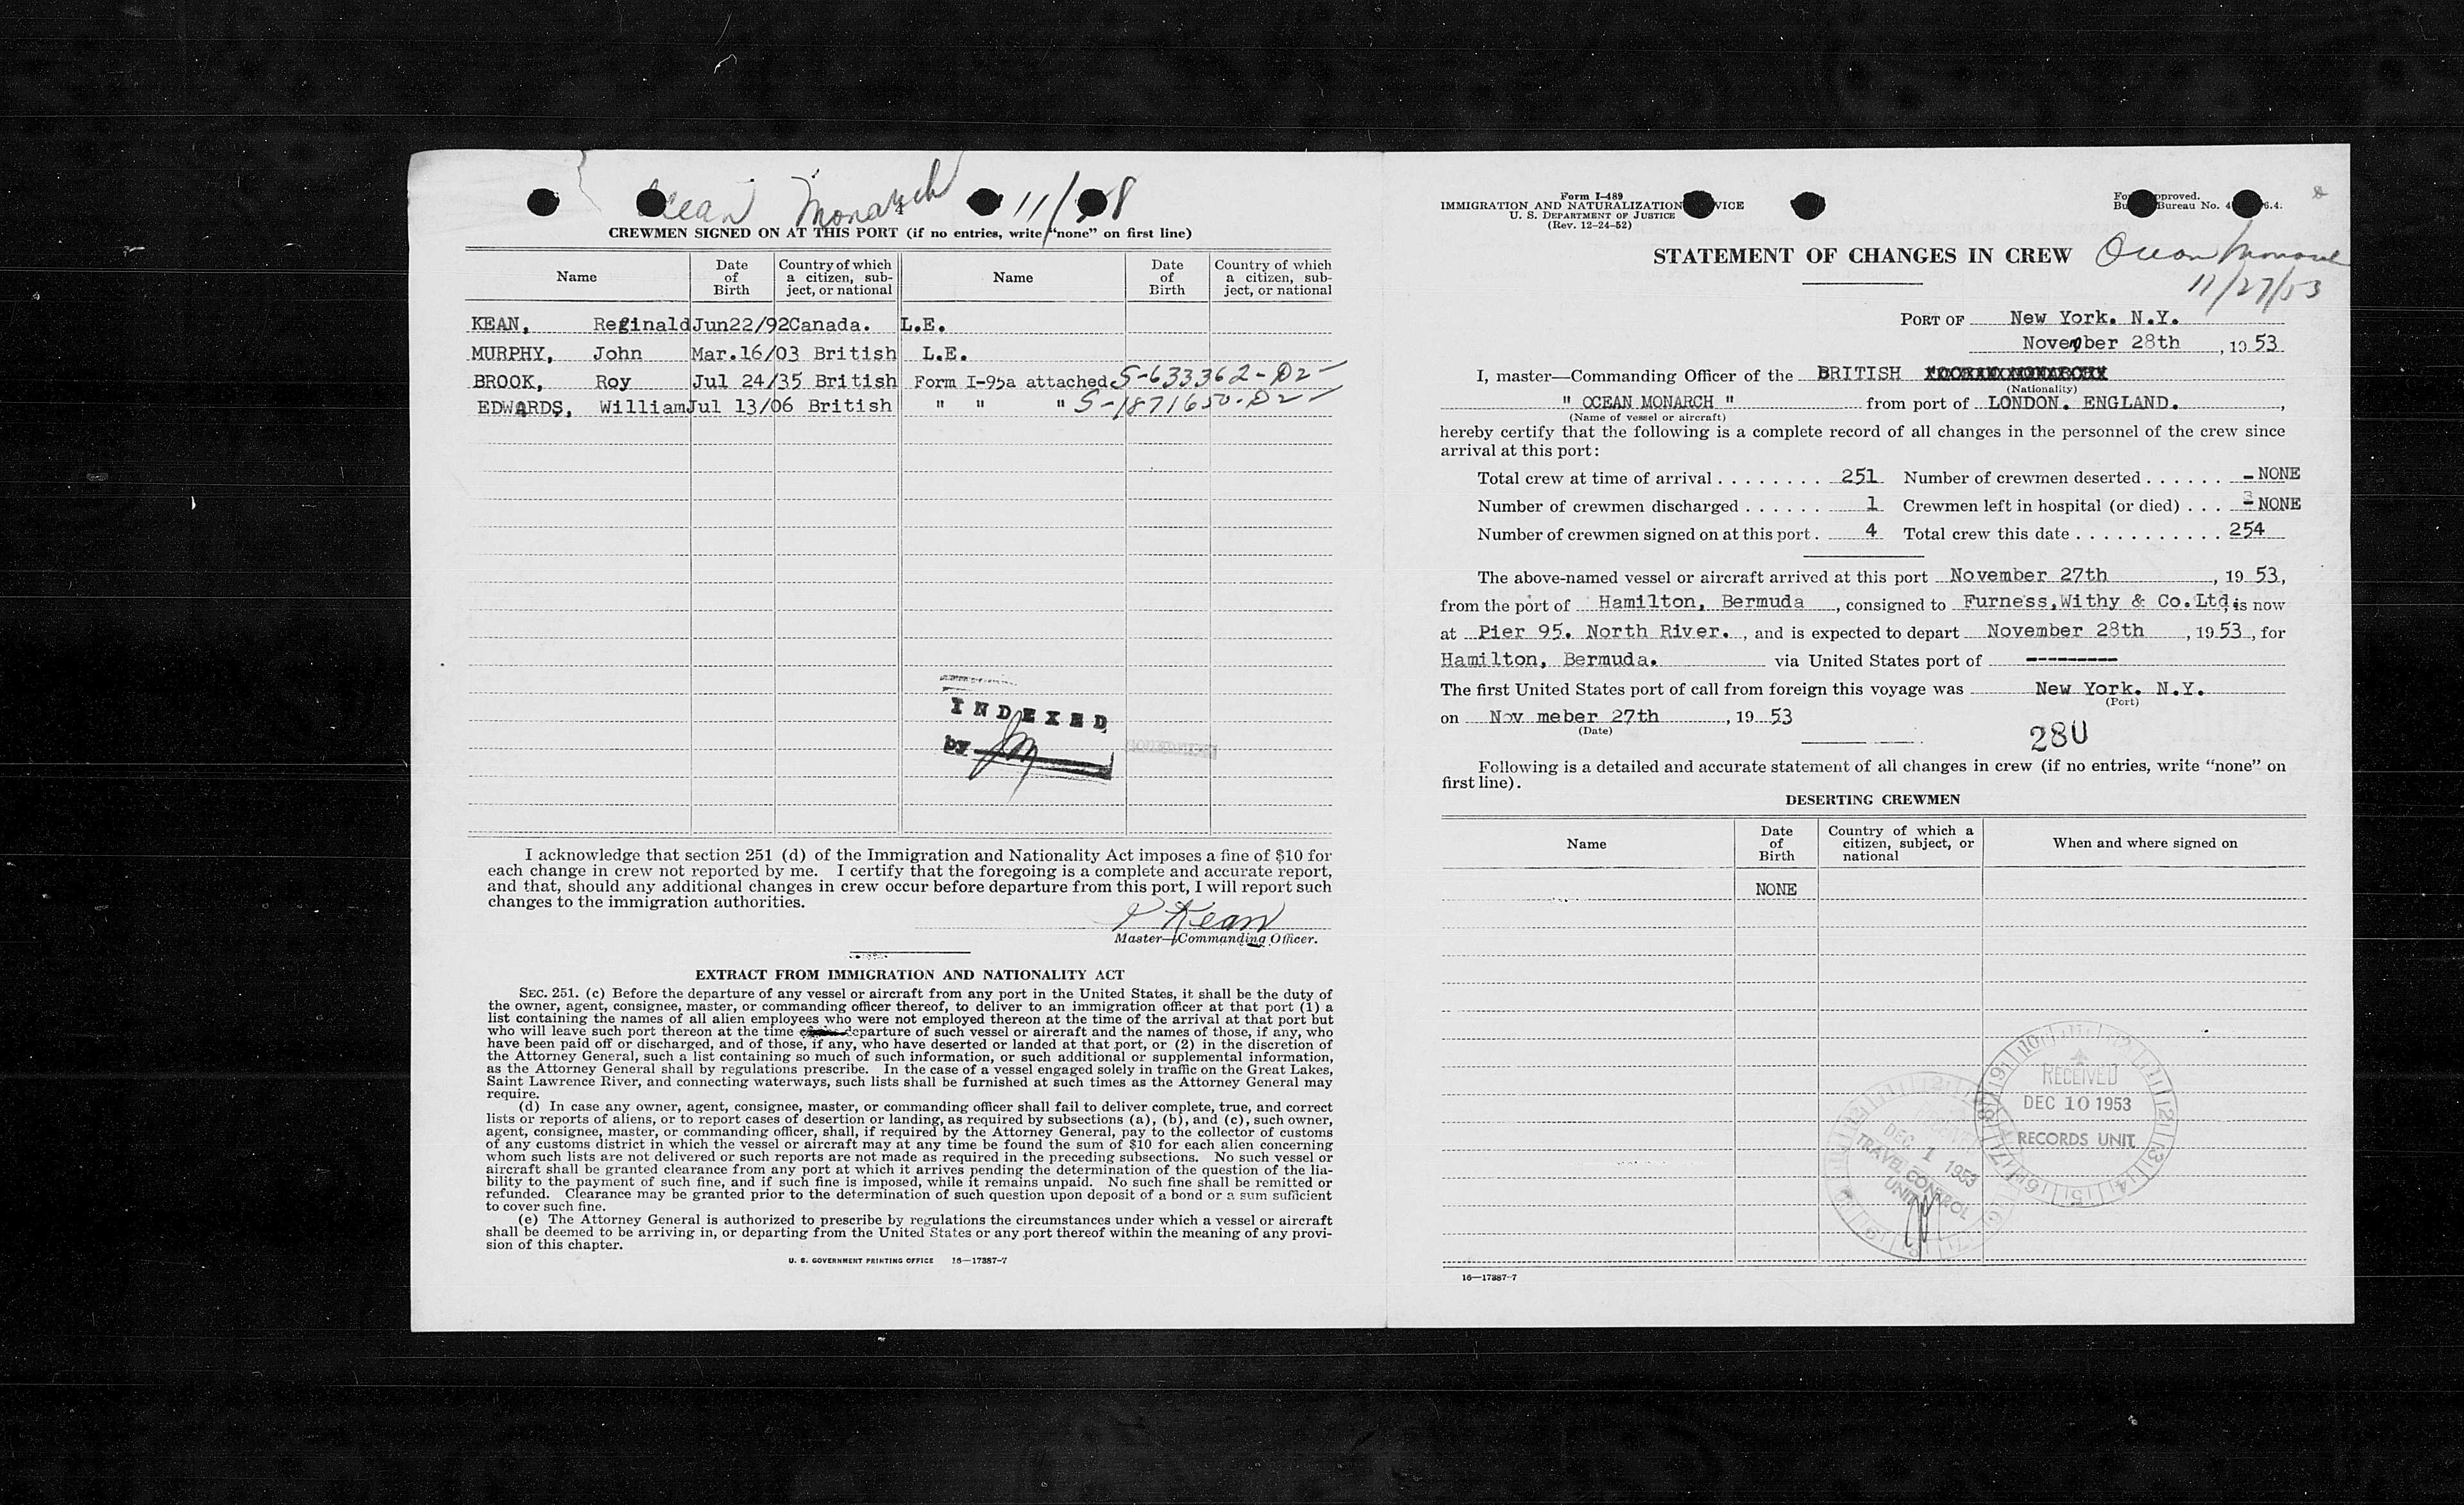 Ocean Monarch 11/28
4
CREWMEN SIGNED ON AT THIS PORT (if no entries, write "none" on first line)
Name Date of Birth Country of which a citizen, sub-ject, or national Name Date of Birth Country of which a citizen, sub-ject, or national
KEAN, Reginald Jun22/92 Canada. L.E.
MURPHY, John Mar.16/03 British L.E.
BROOK, Roy Jul 24/35 British Form I-95a attached S-633362-D2-
EDWARDS, William Jul 13/06 British " " " S-1871650-D2-
INDEXED
by
I acknowledge that section 251 (d) of the Immigration and Nationality Act imposes a fine of $10 for
each change in crew not reported by me. I certify that the foregoing is a complete and accurate report,
and that, should any additional changes in crew occur before departure from this port, I will report such
changes to the immigration authorities.
Kean
Master—Commanding Officer.
EXTRACT FROM IMMIGRATION AND NATIONALITY ACT
SEC. 251. (c) Before the departure of any vessel or aircraft from any port in the United States, it shall be the duty of
the owner, agent, consignee, master, or commanding officer thereof, to deliver to an immigration officer at that port (1) a
list containing the names of all alien employees who were not employed thereon at the time of the arrival at that port but
who will leave such port thereon at the time departure of such vessel or aircraft and the names of those, if any, who
have been paid off or discharged, and of those, if any, who have deserted or landed at that port, or (2) in the discretion of
the Attorney General, such a list containing so much of such information, or such additional or supplemental information,
as the Attorney General shall by regulations prescribe. In the case of a vessel engaged solely in traffic on the Great Lakes,
Saint Lawrence River, and connecting waterways, such lists shall be furnished at such times as the Attorney General may
require.
(d) In case any owner, agent, consignee, master, or commanding officer shall fail to deliver complete, true, and correct
lists or reports of aliens, or to report cases of desertion or landing, as required by subsections (a), (b), and (c), such owner,
agent, consignee, master, or commanding officer, shall, if required by the Attorney General, pay to the collector of customs
of any customs district in which the vessel or aircraft may at any time be found the sum of $10 for each alien concerning
whom such lists are not delivered or such reports are not made as required in the preceding subsections. No such vessel or
aircraft shall be granted clearance from any port at which it arrives pending the determination of the question of the lia-
bility to the payment of such fine, and if such fine is imposed, while it remains unpaid. No such fine shall be remitted or
refunded. Clearance may be granted prior to the determination of such question upon deposit of a bond or a sum sufficient
to cover such fine.
(e) The Attorney General is authorized to prescribe by regulations the circumstances under which a vessel or aircraft
shall be deemed to be arriving in, or departing from the United States or any port thereof within the meaning of any provi-
sion of this chapter.
U. S. GOVERNMENT PRINTING OFFICE 16—17387-7
Form I-489
IMMIGRATION AND NATURALIZATION VICE
U. S. DEPARTMENT OF JUSTICE
(Rev. 12-24-52)
Fo pproved.
Bu Bureau No. 4 6.4.
STATEMENT OF CHANGES IN CREW
Ocean Monarch
11/27/53
PORT OF New York. N.Y.
November 28th, 19 53
I, master—Commanding Officer of the BRITISH
(Nationality)
" OCEAN MONARCH " from port of LONDON. ENGLAND.,
(Name of vessel or aircraft)
hereby certify that the following is a complete record of all changes in the personnel of the crew since
arrival at this port:
Total crew at time of arrival ........ 251 Number of crewmen deserted ...... - NONE
Number of crewmen discharged ...... 1 Crewmen left in hospital (or died) ... - NONE
Number of crewmen signed on at this port. 4 Total crew this date ........... 254
The above-named vessel or aircraft arrived at this port November 27th, 19 53,
from the port of Hamilton, Bermuda, consigned to Furness,Withy & Co.Ltd, is now
at Pier 95. North River., and is expected to depart November 28th, 19 53, for
Hamilton, Bermuda. via United States port of ---------
The first United States port of call from foreign this voyage was New York. N.Y.
(Port)
on Nov meber 27th, 19 53
(Date)
280
Following is a detailed and accurate statement of all changes in crew (if no entries, write "none" on
first line).
DESERTING CREWMEN
Name Date of Birth Country of which a citizen, subject, or national When and where signed on
NONE
RECEIVED
DEC 10 1953
RECORDS UNIT
DEC 1 1953
TRAVEL CONTROL
UNIT
16—17387-7